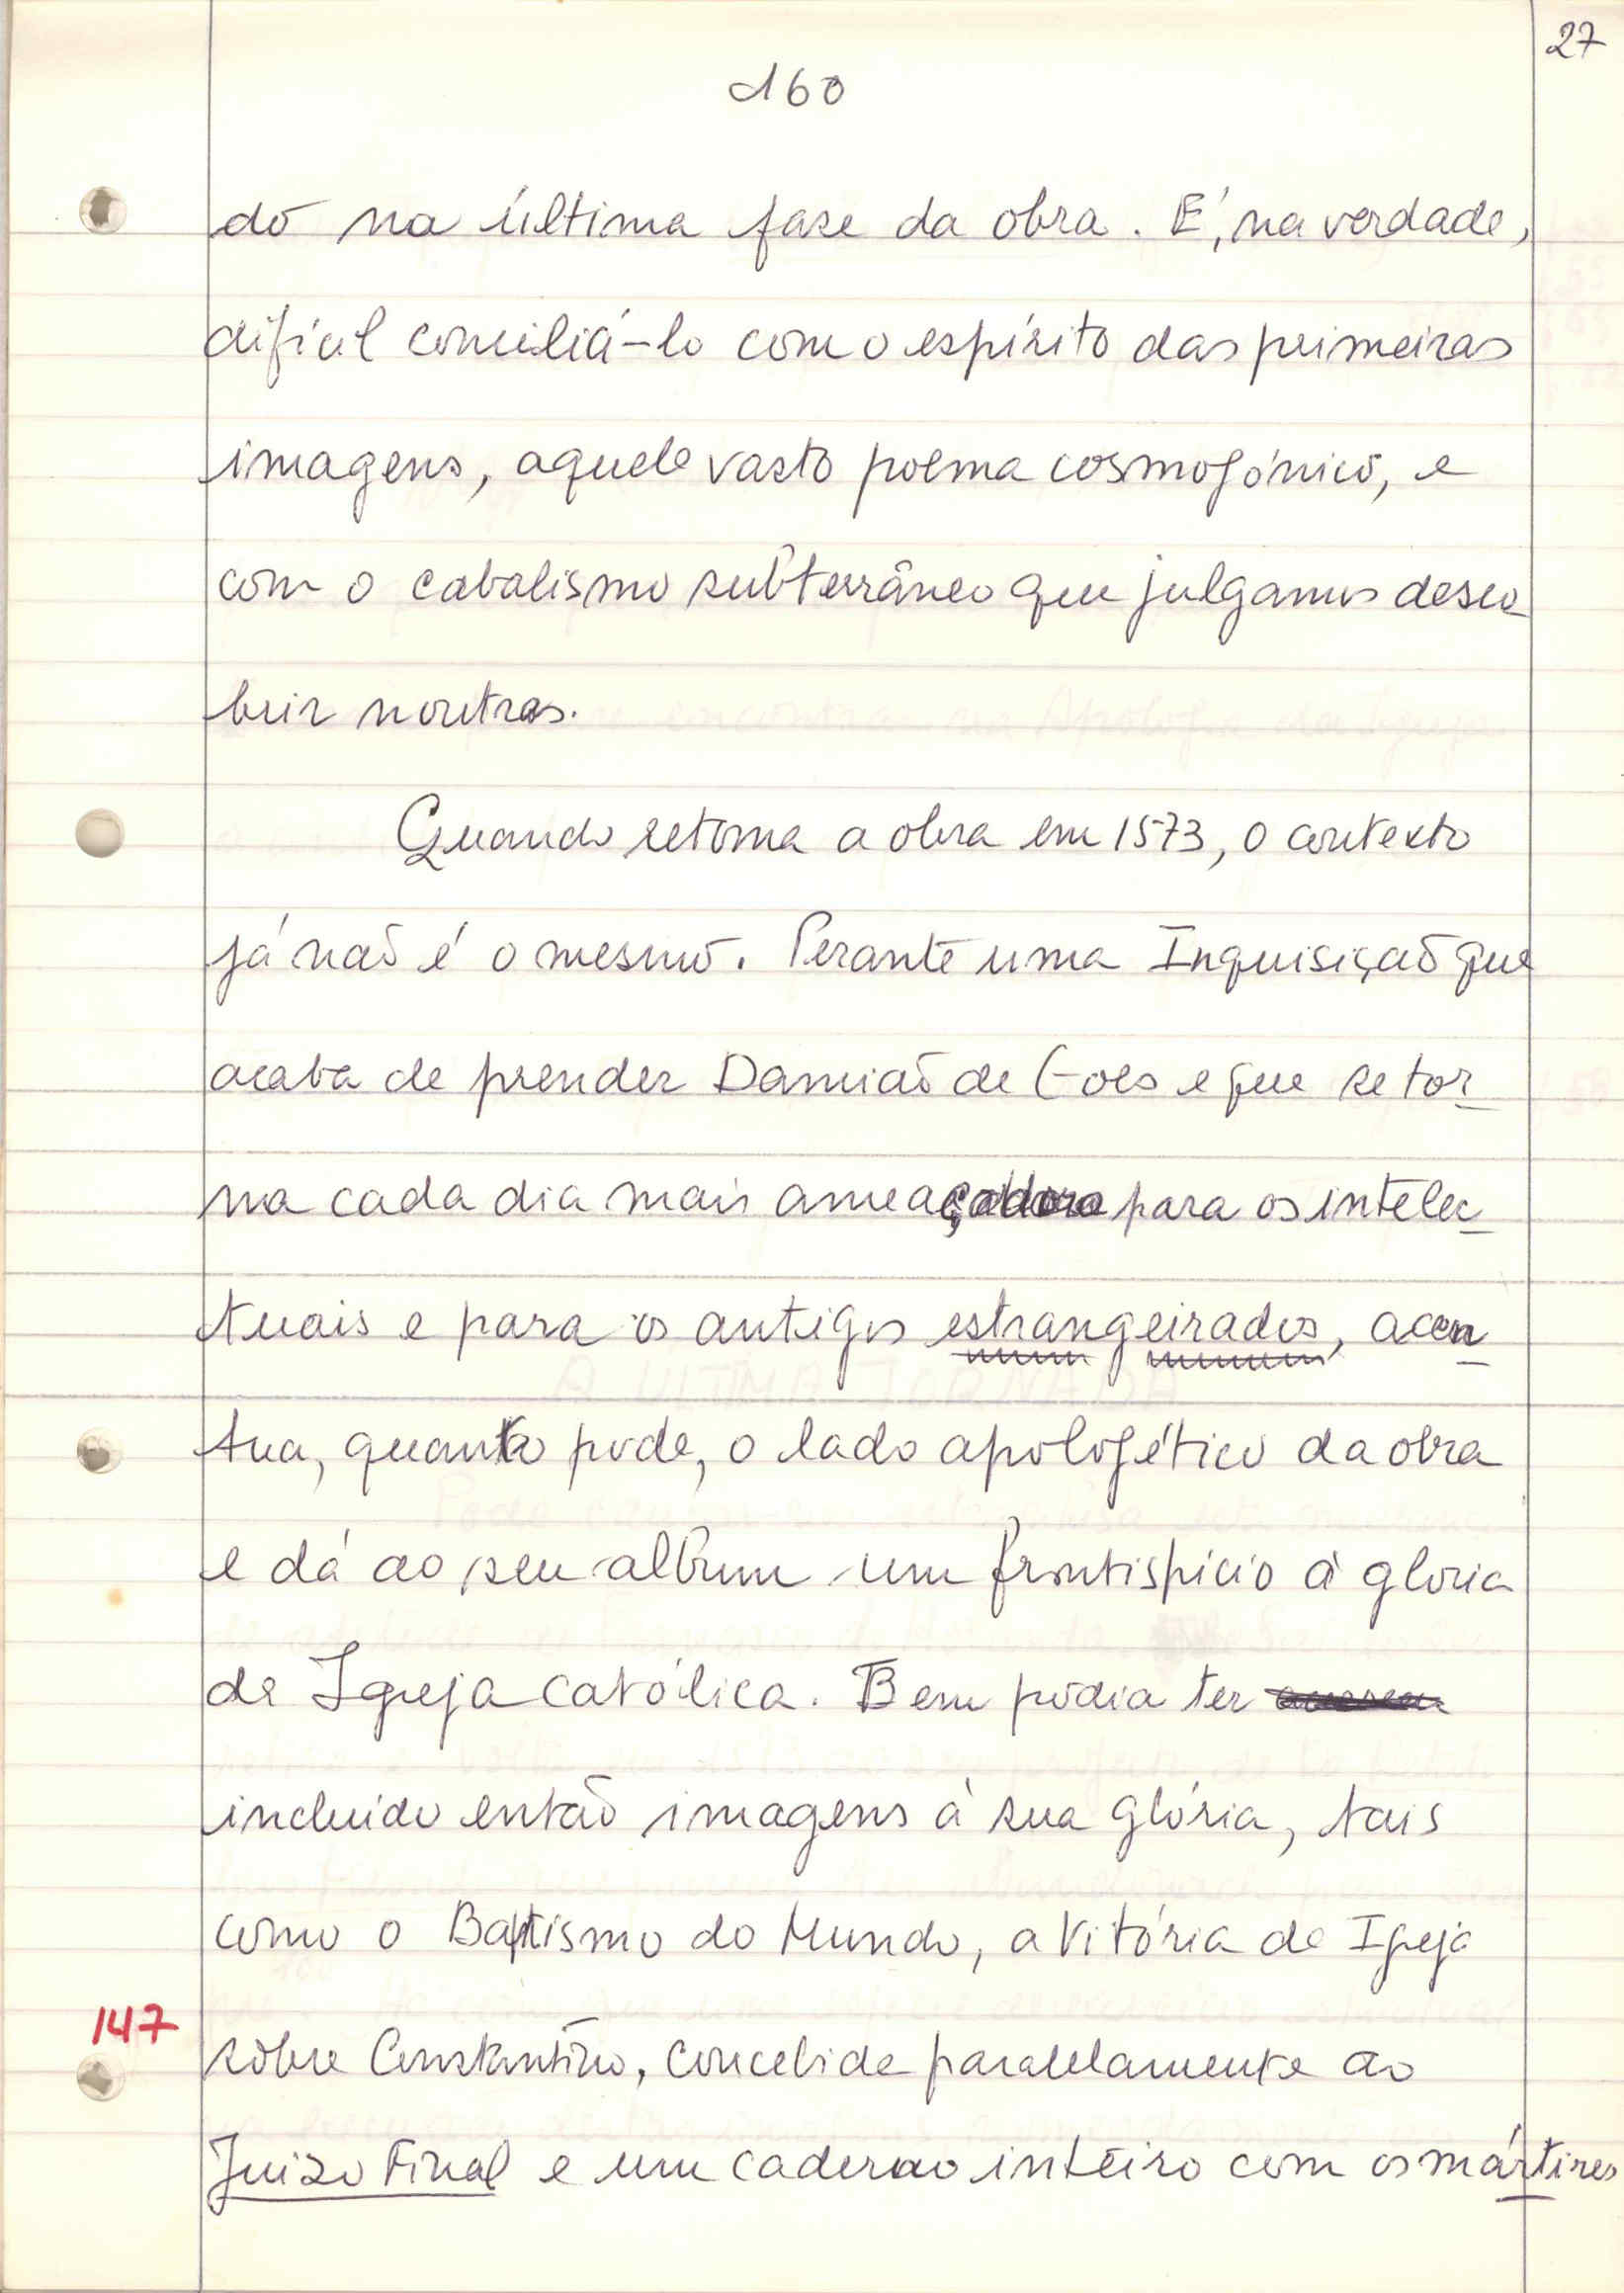 27
160
do na última fase da obra. É, na verdade,
difícil conciliá-lo com o espírito das primeiras
imagens, aquele vasto poema cosmogónico, e
com o cabalismo subterrâneo que julgamos desco
brir noutras.
Quando retoma a obra em 1573, o contexto
já não é o mesmo. Perante uma Inquisição que
acaba de prender Damião de Goes e que se tor
na cada dia mais ameaçadora para os intelec
tuais e para os antigos estrangeirados, acen
tua, quanto pode, o lado apologético da obra
e dá ao seu album um frontispício à gloria
da Igreja católica. Bem podia ter
incluido então imagens à sua glória, tais
como o Baptismo do Mundo, a Vitória da Igreja
147
sobre Constantino, concebida paralelamente ao
Juizo Final e um caderno inteiro com os mártires